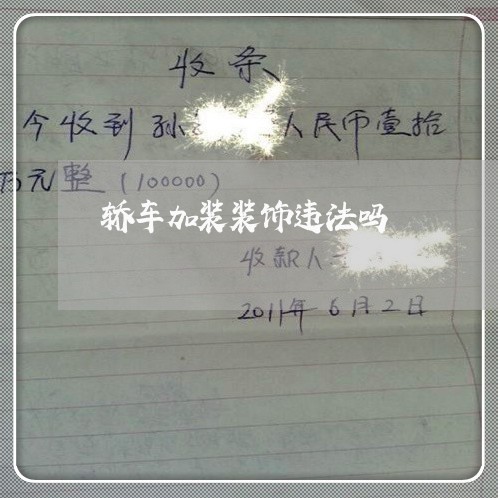 收条
今收到孙 人民币壹拾
万元整（100000）
轿车加装装饰违法吗
收款人
2011年6月2日